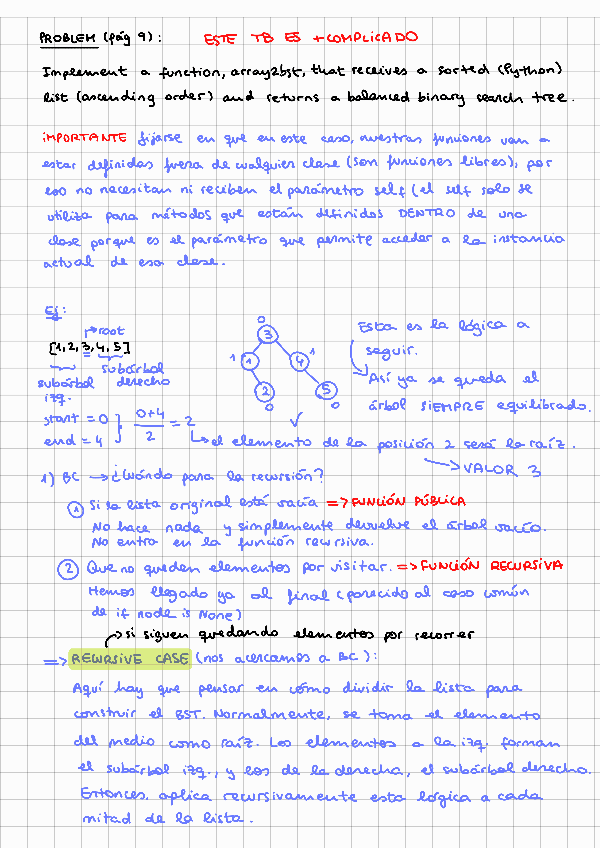 PROBLEM (pág 9): ESTE TB ES + COMPLICADO
Implement a function, array2bst, that receives a sorted (Python)
list (ascending order) and returns a balanced binary search tree.
IMPORTANTE fijarse en que en este caso, nuestras funciones van a
estar definidas fuera de cualquier clase (son funciones libres), por
eso no necesitan ni reciben el parámetro self (el self solo se
utiliza para métodos que están definidos DENTRO de una
clase porque es el parámetro que permite acceder a la instancia
actual de esa clase.
Ej:
root
[1,2,3,4,5]
subárbol izq.
subárbol derecho
start = 0
end = 4
0+4
2
= 2
el elemento de la posición 2 será la raíz.
VALOR 3
0
3
1
1
4
1
2
5
0
0
✓
Esta es la lógica a
seguir.
Así ya se queda el
árbol SIEMPRE equilibrado.
1) BC → ¿Cuándo para la recursión?
1 Si la lista original está vacía => FUNCIÓN PÚBLICA
No hace nada y simplemente devuelve el árbol vacío.
No entra en la función recursiva.
2 Que no queden elementos por visitar. => FUNCIÓN RECURSIVA
Hemos llegado ya al final (parecido al caso común
de if node is None)
si siguen quedando elementos por recorrer
=> RECURSIVE CASE (nos acercamos a BC):
Aquí hay que pensar en cómo dividir la lista para
construir el BST. Normalmente, se toma el elemento
del medio como raíz. Los elementos a la izq. forman
el subárbol izq., y los de la derecha, el subárbol derecho.
Entonces, aplica recursivamente esta lógica a cada
mitad de la lista.